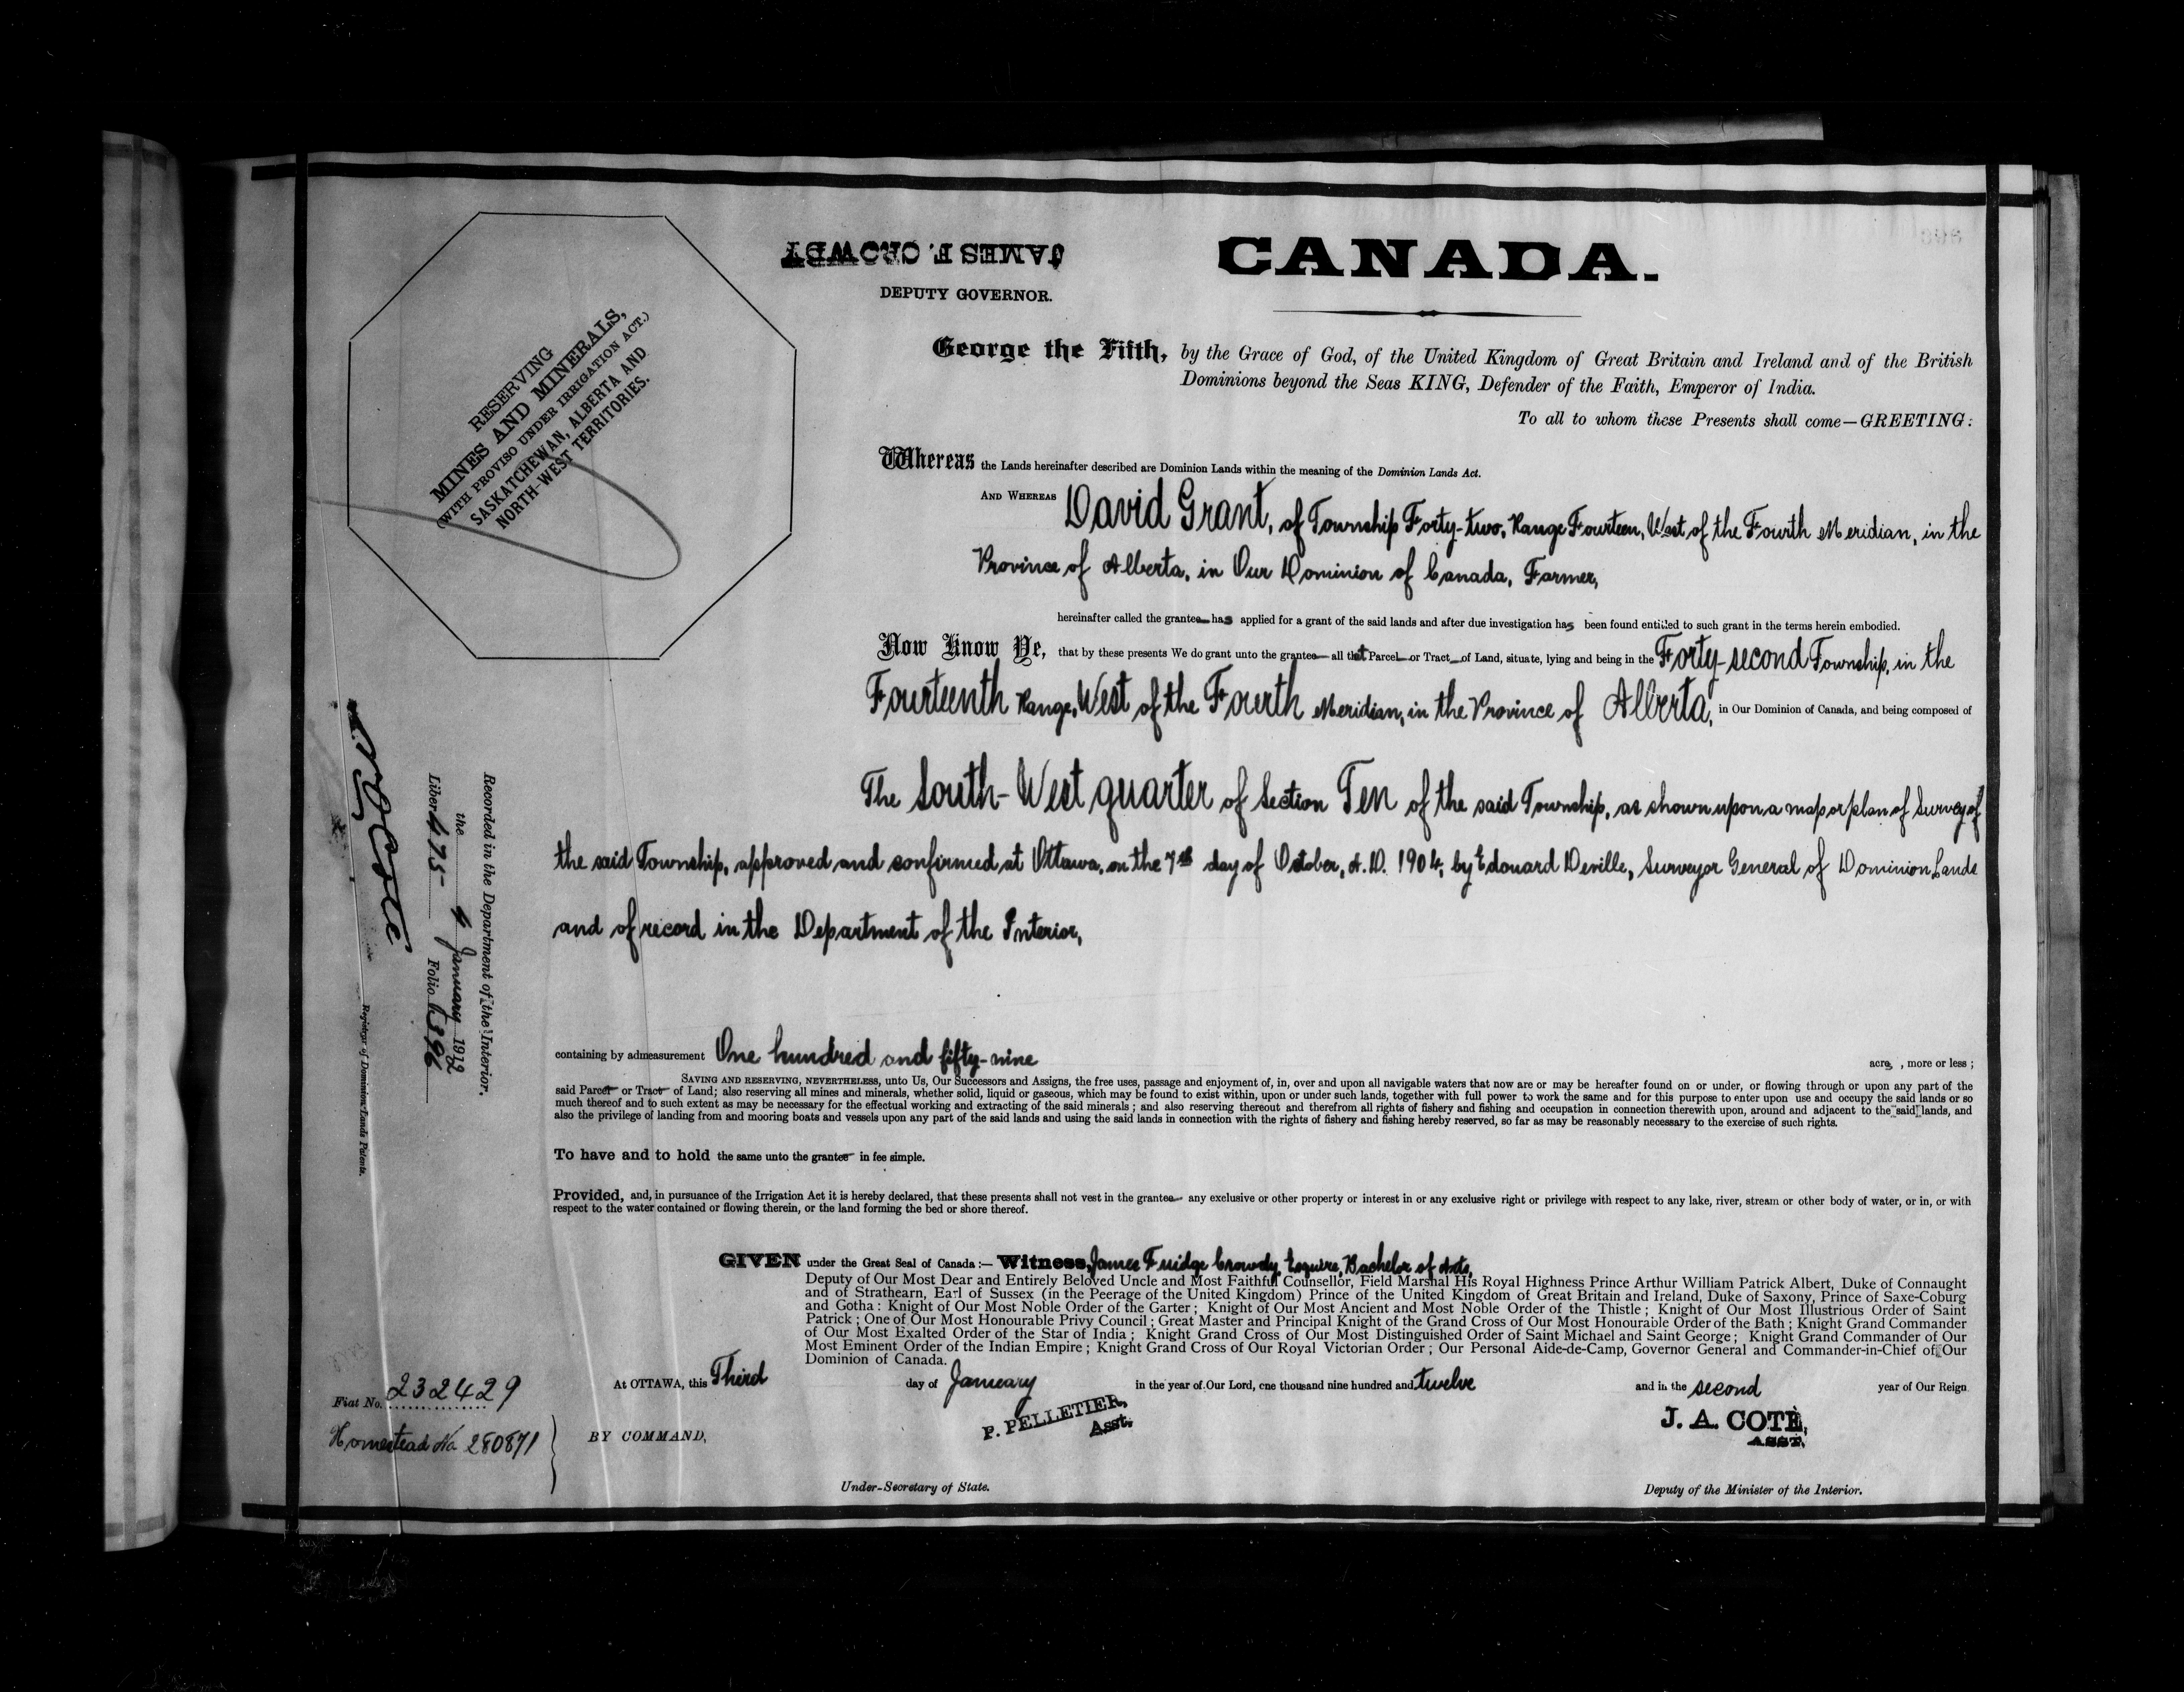 CANADA.
JAMES F. CROWDY
DEPUTY GOVERNOR.
RESERVING
MINES AND MINERALS,
(WITH PROVISO UNDER IRRIGATION ACT.)
SASKATCHEWAN, ALBERTA AND
NORTH-WEST TERRITORIES.
George the Fifth, by the Grace of God, of the United Kingdom of Great Britain and Ireland and of the British
Dominions beyond the Seas KING, Defender of the Faith, Emperor of India.
To all to whom these Presents shall come—GREETING:
Whereas the Lands hereinafter described are Dominion Lands within the meaning of the Dominion Lands Act.
AND WHEREAS David Grant, of Township Forty-two, Range Fourteen, West of the Fourth Meridian, in the
Province of Alberta, in Our Dominion of Canada, Farmer,
hereinafter called the grantee has applied for a grant of the said lands and after due investigation has been found entitled to such grant in the terms herein embodied.
Now Know Ye, that by these presents We do grant unto the grantee all that Parcel or Tract of Land, situate, lying and being in the Forty-second Township, in the
Fourteenth Range, West of the Fourth Meridian, in the Province of Alberta, in Our Dominion of Canada, and being composed of
The South-West quarter of Section Ten of the said Township, as shown upon a map or plan of Survey of
the said Township, approved and confirmed at Ottawa, on the 7th day of October, A.D. 1904, by Edouard Deville, Surveyor General of Dominion Lands
and of record in the Department of the Interior,
containing by admeasurement One hundred and fifty-nine acres, more or less;
SAVING AND RESERVING, NEVERTHELESS, unto Us, Our Successors and Assigns, the free uses, passage and enjoyment of, in, over and upon all navigable waters that now are or may be hereafter found on or under, or flowing through or upon any part of the
said Parcel or Tract of Land; also reserving all mines and minerals, whether solid, liquid or gaseous, which may be found to exist within, upon or under such lands, together with full power to work the same and for this purpose to enter upon use and occupy the said lands or so
much thereof and to such extent as may be necessary for the effectual working and extracting of the said minerals; and also reserving thereout and therefrom all rights of fishery and fishing and occupation in connection therewith upon, around and adjacent to the said lands, and
also the privilege of landing from and mooring boats and vessels upon any part of the said lands and using the said lands in connection with the rights of fishery and fishing hereby reserved, so far as may be reasonably necessary to the exercise of such rights.
To have and to hold the same unto the grantee in fee simple.
Provided, and, in pursuance of the Irrigation Act it is hereby declared, that these presents shall not vest in the grantee any exclusive or other property or interest in or any exclusive right or privilege with respect to any lake, river, stream or other body of water, or in, or with
respect to the water contained or flowing therein, or the land forming the bed or shore thereof.
GIVEN under the Great Seal of Canada:— Witness, James Fuidge Crowdy, Esquire, Bachelor of Arts,
Deputy of Our Most Dear and Entirely Beloved Uncle and Most Faithful Counsellor, Field Marshal His Royal Highness Prince Arthur William Patrick Albert, Duke of Connaught
and of Strathearn, Earl of Sussex (in the Peerage of the United Kingdom) Prince of the United Kingdom of Great Britain and Ireland, Duke of Saxony, Prince of Saxe-Coburg
and Gotha: Knight of Our Most Noble Order of the Garter; Knight of Our Most Ancient and Most Noble Order of the Thistle; Knight of Our Most Illustrious Order of Saint
Patrick; One of Our Most Honourable Privy Council; Great Master and Principal Knight of the Grand Cross of Our Most Honourable Order of the Bath; Knight Grand Commander
of Our Most Exalted Order of the Star of India; Knight Grand Cross of Our Most Distinguished Order of Saint Michael and Saint George; Knight Grand Commander of Our
Most Eminent Order of the Indian Empire; Knight Grand Cross of Our Royal Victorian Order; Our Personal Aide-de-Camp, Governor General and Commander-in-Chief of Our
Dominion of Canada.
At OTTAWA, this Third day of January in the year of Our Lord, one thousand nine hundred and twelve and in the second year of Our Reign
BY COMMAND,
P. PELLETIER,
Asst.
Under-Secretary of State.
J. A. COTÉ,
ASST.
Deputy of the Minister of the Interior.
Recorded in the Department of the Interior,
the 4 January 1912
Liber 475 Folio 396
N. O. Coté
Registrar of Dominion Lands Patents.
Fiat No. 232429
Homestead No 280871